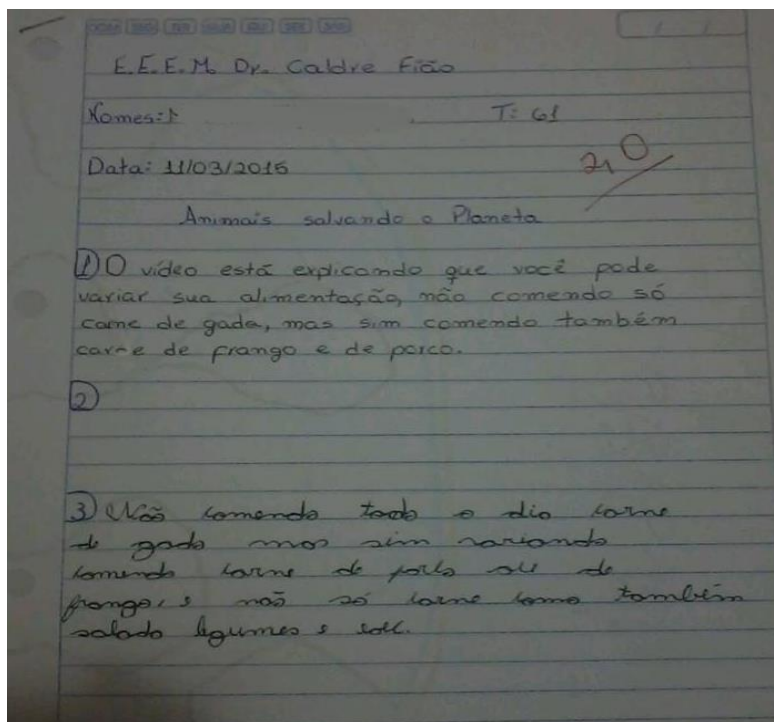 DOM SEG TER QUA QUI SEX SÁB
/ /
E.E.E.M. Dr. Caldre Fião
Nomes: T: 61
Data: 11/03/2015
2,0
Animais salvando o Planeta
1) O vídeo está explicando que você pode
variar sua alimentação, não comendo só
carne de gado, mas sim comendo também
carne de frango e de porco.
2)
3) Não comendo todo o dia carne
de gado mas sim variando
comendo carne de porco ou de
frango, e não só carne como também
salada legumes e